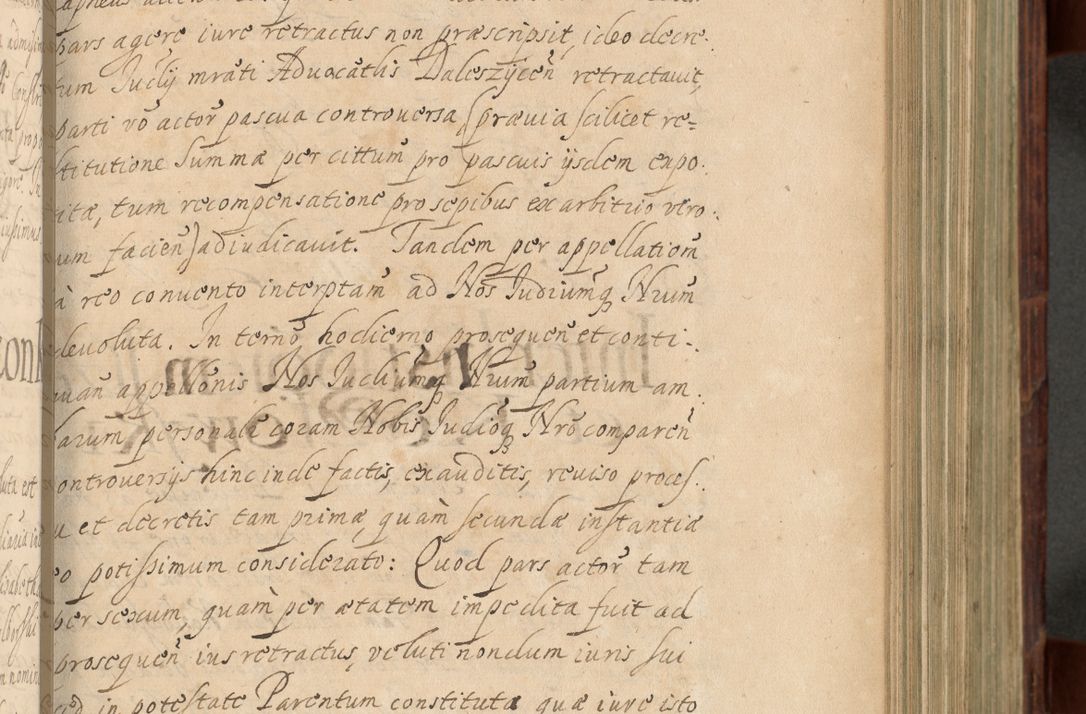 pars agere iure retractus non præscripsit, ideo decre:
tum Judij mrāti Advocātlis Daleszycen̄ retractauit,
parti vō actor̄ pascua controversa (prævia scilicet re=
stitutione Summæ per cittum̄ pro pascuis ijsdem expo:
sitæ, tum recompensatione pro sepibus ex arbitrio viro:
rum facien̄) adiudicavit. Tandem per appellation̄
à reo convento interptam̄ ad Nos Judiumq̄ Nrum
devoluta. In termō hodierno prosequen̄ et conti:
nuan̄ appellōnis Nos Judiumq̄ Nrum partium am:
barum personali coram Nobis Judioq̄ Nrō comparen̄
controversijs hinc inde factis, exauditis, reviso proces:
su et decretis tam primæ, quàm secundæ instantiæ
eo potissimum considerato: Quod pars actor̄ tam
per sexum, quàm per ætatem impedita fuit ad
prosequen̄ ius retractus, veluti nondum iuris sui
sed in potestate Parentum constituta quæ iure isto